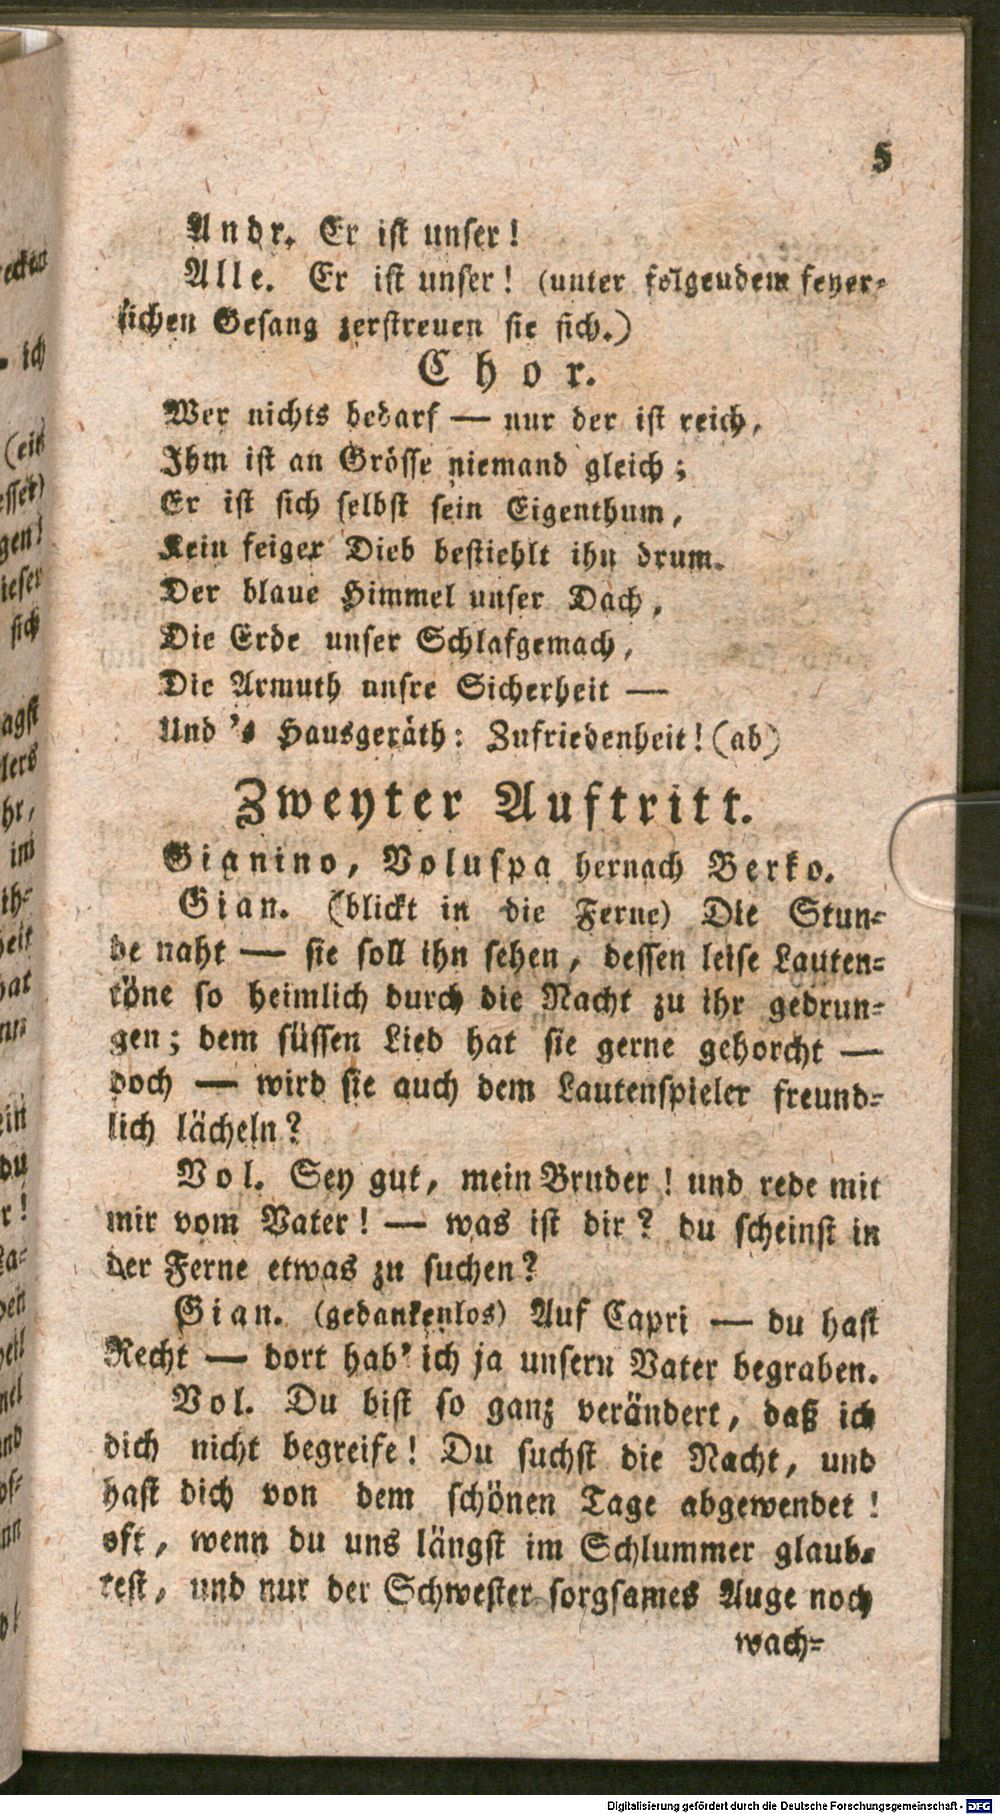 5
Andr. Er ist unser!
Alle. Er ist unser! (unter folgendem feyer-
lichen Gesang zerstreuen sie sich.)
Chor.
Wer nichts bedarf — nur der ist reich,
Ihm ist an Grösse niemand gleich;
Er ist sich selbst sein Eigenthum,
Kein feiger Dieb bestiehlt ihn drum.
Der blaue Himmel unser Dach,
Die Erde unser Schlafgemach,
Die Armuth unsre Sicherheit —
Und 's Hausgeräth: Zufriedenheit! (ab)
Zweyter Auftritt.
Gianino, Voluspa hernach Berko.
Gian. (blickt in die Ferne) Die Stun-
de naht — sie soll ihn sehen, dessen leise Lauten-
töne so heimlich durch die Nacht zu ihr gedrun-
gen; dem süssen Lied hat sie gerne gehorcht —
doch — wird sie auch dem Lautenspieler freund-
lich lächeln?
Vol. Sey gut, mein Bruder! und rede mit
mir vom Vater! — was ist dir? du scheinst in
der Ferne etwas zu suchen?
Gian. (gedankenlos) Auf Capri — du hast
Recht — dort hab' ich ja unsern Vater begraben.
Vol. Du bist so ganz verändert, daß ich
dich nicht begreife! Du suchst die Nacht, und
hast dich von dem schönen Tage abgewendet!
oft, wenn du uns längst im Schlummer glaub-
test, und nur der Schwester sorgsames Auge noch
wach-
Digitalisierung gefördert durch die Deutsche Forschungsgemeinschaft - DFG